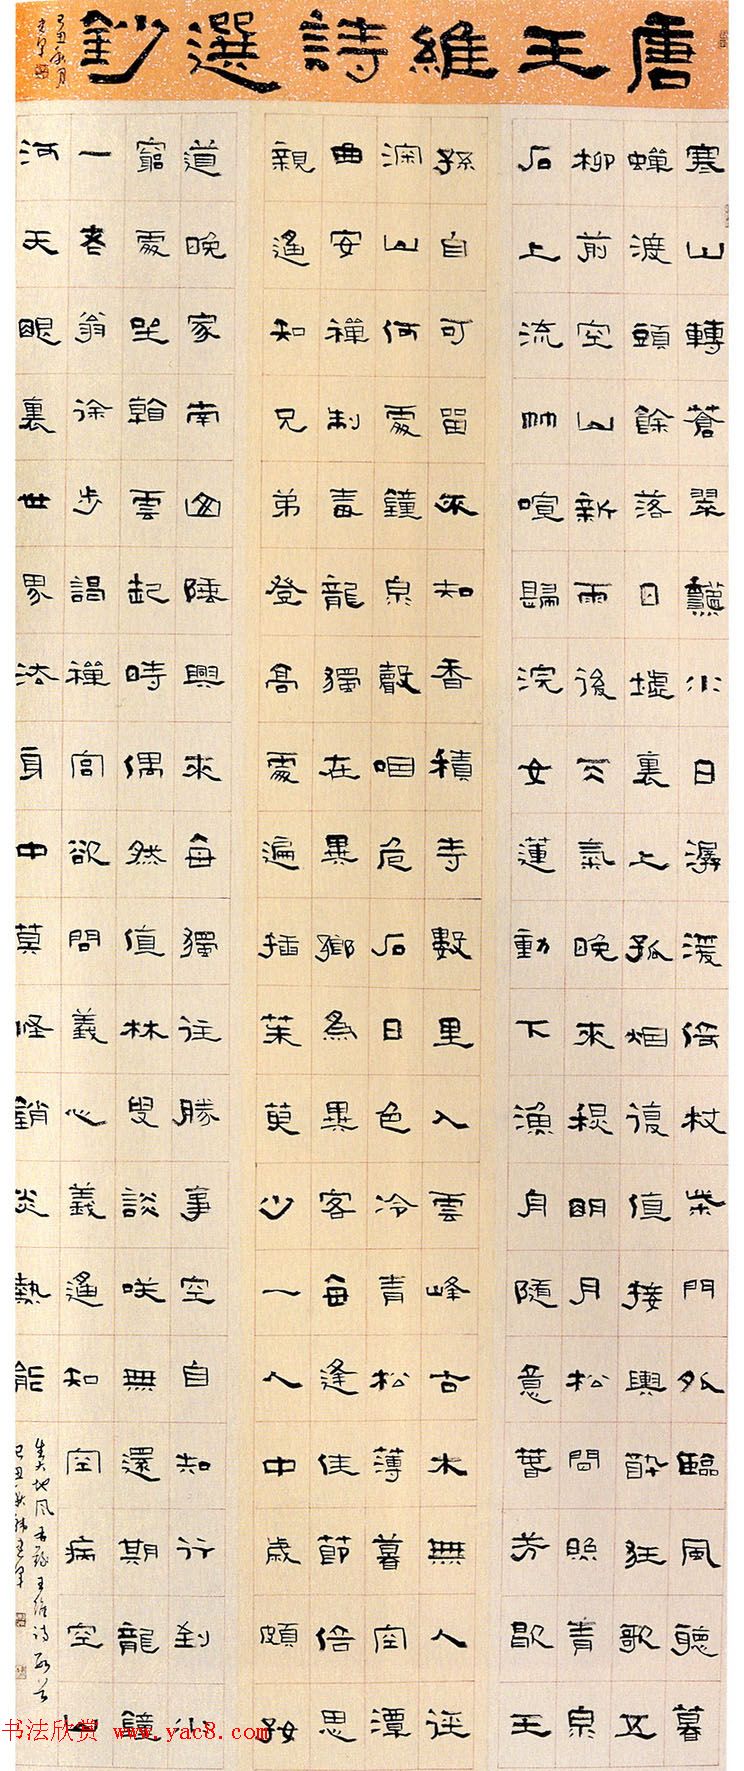 唐王維詩選鈔
己丑秋月
寒山轉蒼翠龝水日潺湲倚杖柴門外臨風聽暮
蟬渡頭餘落日墟裏上孤烟復值接輿醉狂歌五
柳前空山新雨後天氣晚來穐明月松間照青泉
石上流竹喧歸浣女蓮動下漁舟隨意春芳歇王
孫自可留不知香積寺數里入雲峰古木無人徑
深山何處鐘泉聲咽危石日色冷青松薄暮空潭
曲安禪制毒龍獨在異鄉為異客每逢佳節倍思
親遙知兄弟登高處遍插茱萸少一人中歲頗好
道晚家南山陲興來每獨往勝事空自知行到水
窮處坐看雲起時偶然值林叟談咲無還期龍鐘
一老翁徐步謁禪宮欲問義心義遙知空病空山
河天眼裏世界法身中莫怪銷炎熱能
生大地風 書錄王維詩數首
己丑秋
书法欣赏 www.yac8.com